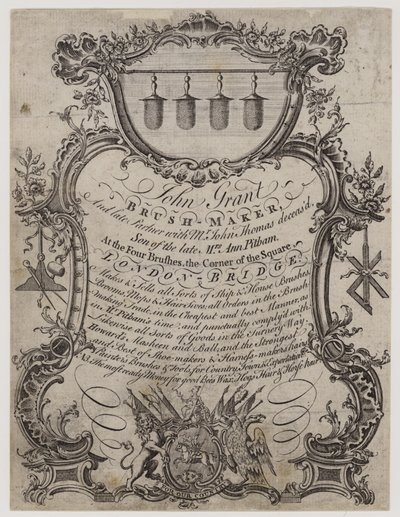 John Grant
BRUSH-MAKER,
And late Partner with Mr. John Thomas deceas'd,
Son of the late Mrs. Ann Pitham.
At the Four Brushes, the Corner of the Square
LONDON-BRIDGE
Makes & Sells all Sorts of Ship & House Brushes,
Mops & Hair Sives; all Orders in the Brush
making Trade, in the Cheapest and best Manner, as
in Pitham's time, and punctually comply'd with.
Likewise all Sorts of Goods in the Turnery Way
and Ball; and the Strongest
and Best of Shoe-makers & Harness-makers hairs
Brushes & Tools, for Country, Town, & Exportation.
NB. The most ready Money for good Bees Wax, Hogs Hair & Horse hair